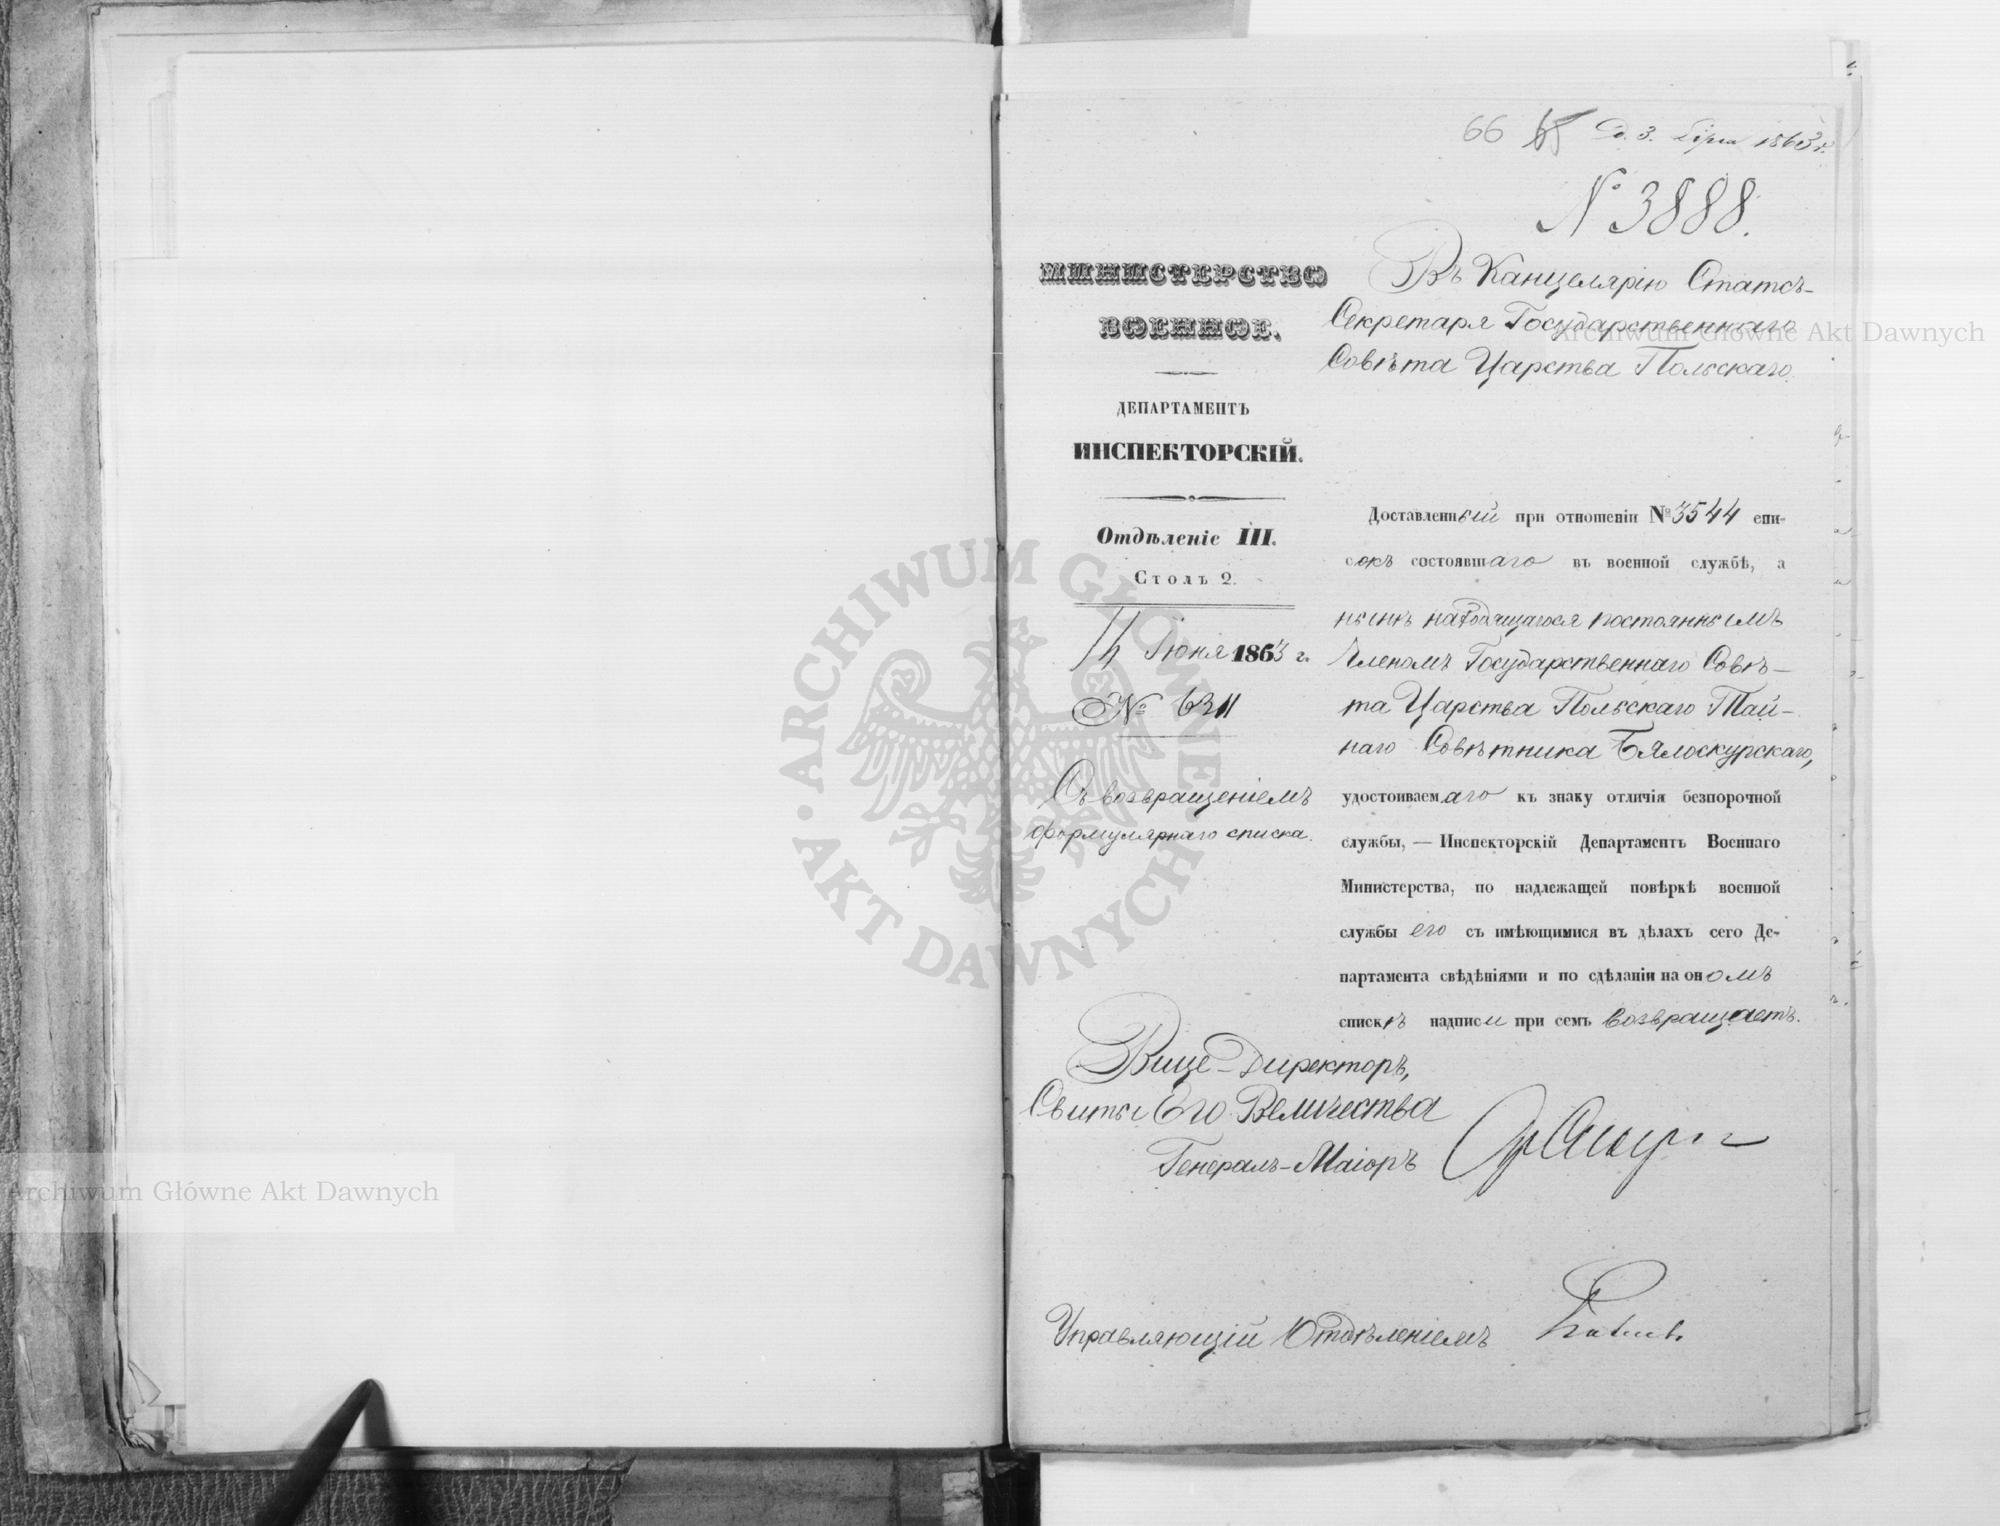 66 D. 3. Lipca 1863 r.
№ 3888.
МИНИСТЕРСТВО
ВОЕННОЕ.
ДЕПАРТАМЕНТЪ
ИНСПЕКТОРСКІЙ.
Отдѣленіе III.
Столъ 2.
14 Іюня 1863 г.
№ 6311
Съ возвращеніемъ
формулярнаго списка.
Въ Канцелярію Статсъ-
Секретаря Государственнаго
Совѣта Царства Польскаго.
Доставленный при отношеніи № 3544 спи-
сокъ состоявшаго въ военной службѣ, а
нынѣ находящагося постояннымъ
Членомъ Государственнаго Совѣ-
та Царства Польскаго Тай-
наго Совѣтника Бялоскурскаго,
удостоиваемаго къ знаку отличія безпорочной
службы, — Инспекторскій Департаментъ Военнаго
Министерства, по надлежащей повѣркѣ военной
службы его съ имѣющимися въ дѣлахъ сего Де-
партамента свѣдѣніями и по сдѣланіи на ономъ
спискѣ надписи при семъ возвращаетъ.
Вице-Директоръ,
Свиты Его Величества
Генералъ-Маіоръ
Управляющій Отдѣленіемъ
Archiwum Główne Akt Dawnych
Archiwum Główne Akt Dawnych
ARCHIWUM GŁÓWNE
AKT DAWNYCH